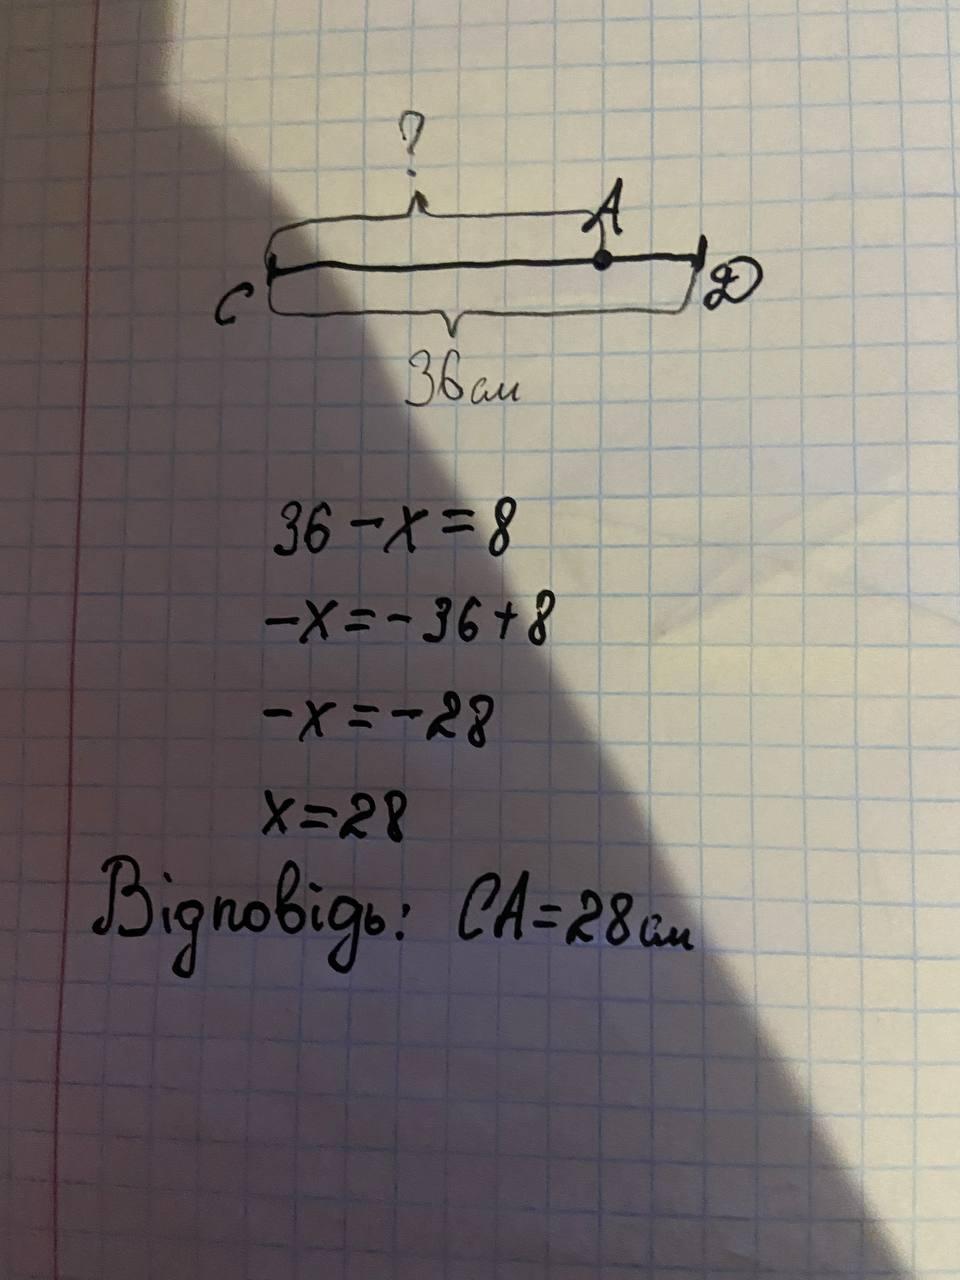 ?
A
C
D
36 см
36 - x = 8
-x = -36 + 8
-x = -28
x = 28
Відповідь: CA = 28 см